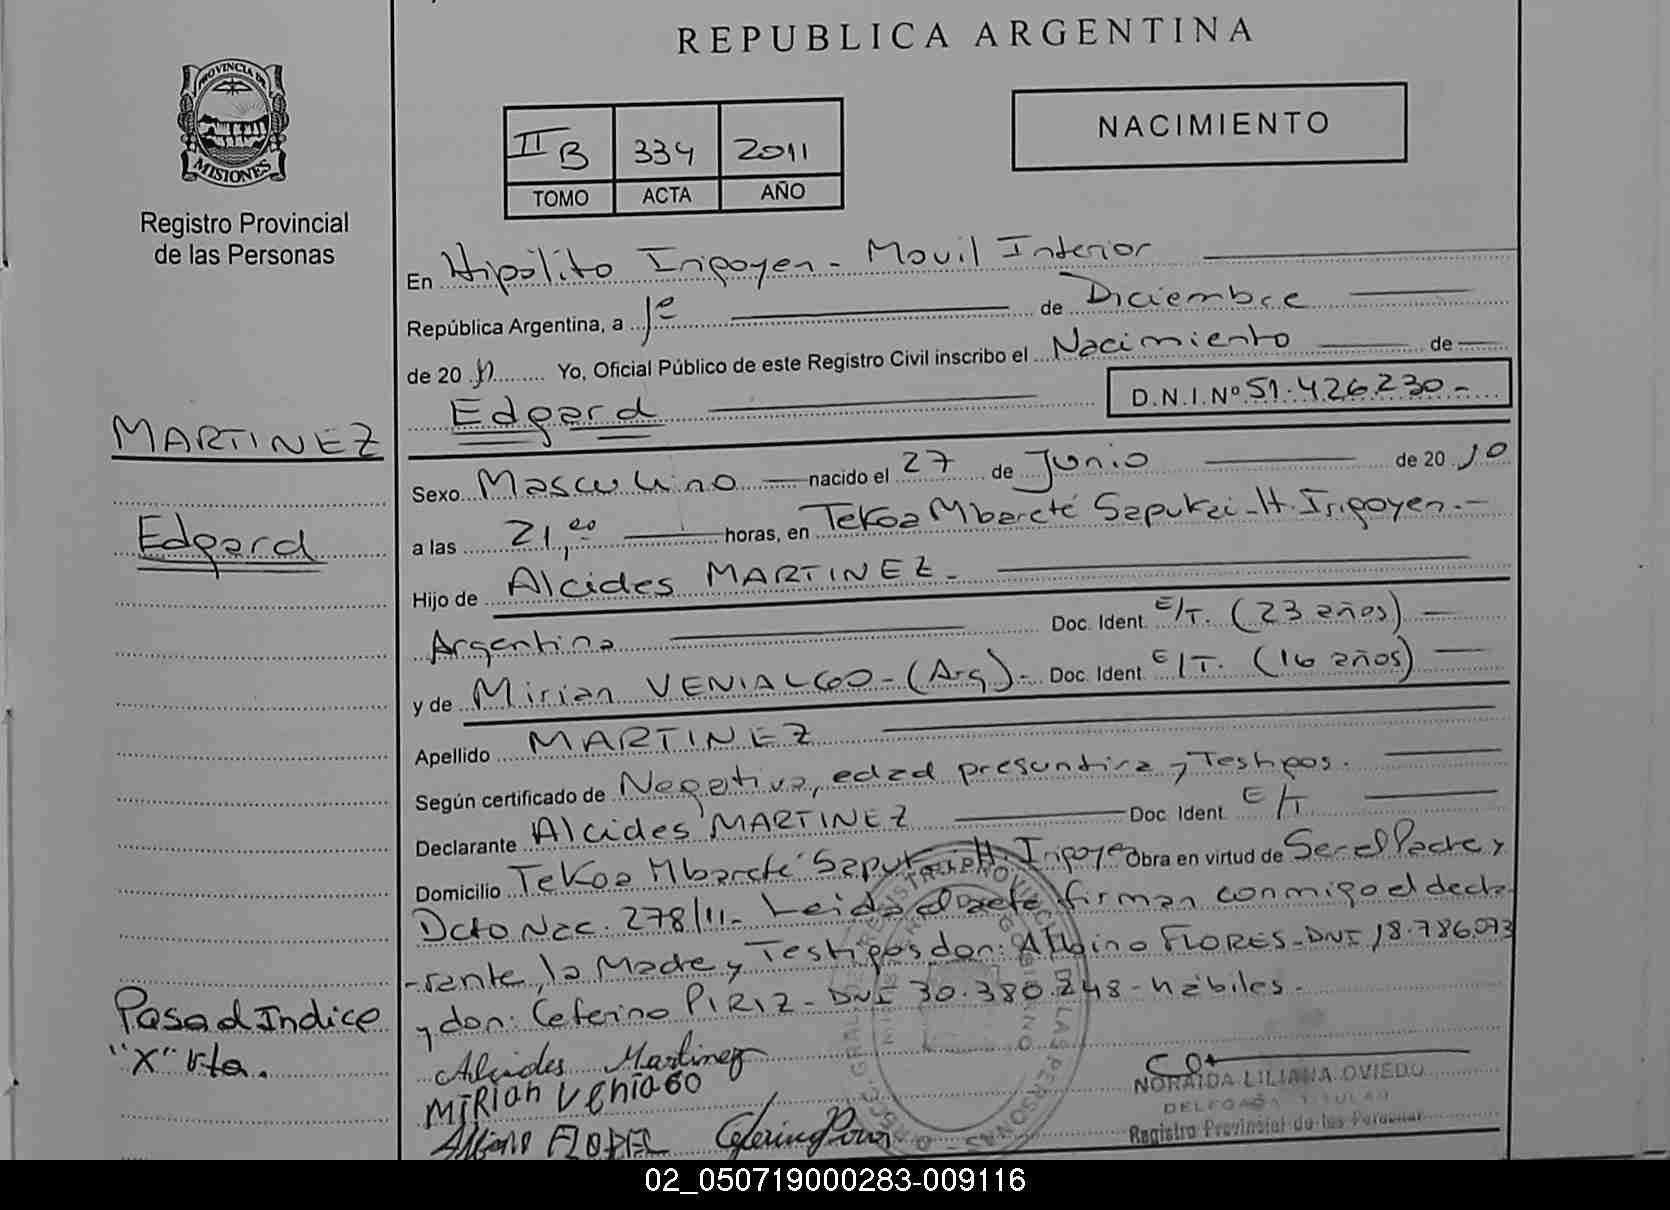 REPUBLICA ARGENTINA
PROVINCIA DE
MISIONES
Registro Provincial
de las Personas
II B 334 2011
TOMO ACTA AÑO
NACIMIENTO
En Hipólito Iripoyen - Movil Interior
República Argentina, a 1º de Diciembre
de 20 11 Yo, Oficial Público de este Registro Civil inscribo el Nacimiento de
Edgard D.N.I. Nº 51.426.230-
MARTINEZ
Edgard
Sexo Masculino nacido el 27 de Junio de 20 10
a las 21,00 horas, en Tekoa Mbareté Sapukai - H. Iripoyen.-
Hijo de Alcides MARTINEZ -
Argentina Doc. Ident. E/T. (23 años)
y de Mirian VENIALGO - (Arg) - Doc. Ident. E/T. (16 años)
Apellido MARTINEZ
Según certificado de Negativa, edad presuntiva y Testigos.
Declarante Alcides MARTINEZ Doc. Ident. E/T
Domicilio Tekoa Mbareté Sapukai H. Iripoyen Obra en virtud de Ser el Padre y
Dcto Nac. 278/11- Leida el acta firman conmigo el decla-
-rante, la Madre y Testigos don: Albino FLORES - DNI 18.786.093
y don: Ceferino PIRIZ - DNI 30.380.248 - hábiles.
Pasa al Indice
"X" vta.
Alcides Martinez
MIRian VeniaGo
Albino FLORES
NORAIDA LILIANA OVIEDO
DELEGADA TITULAR
Registro Provincial de las Personas
02_050719000283-009116